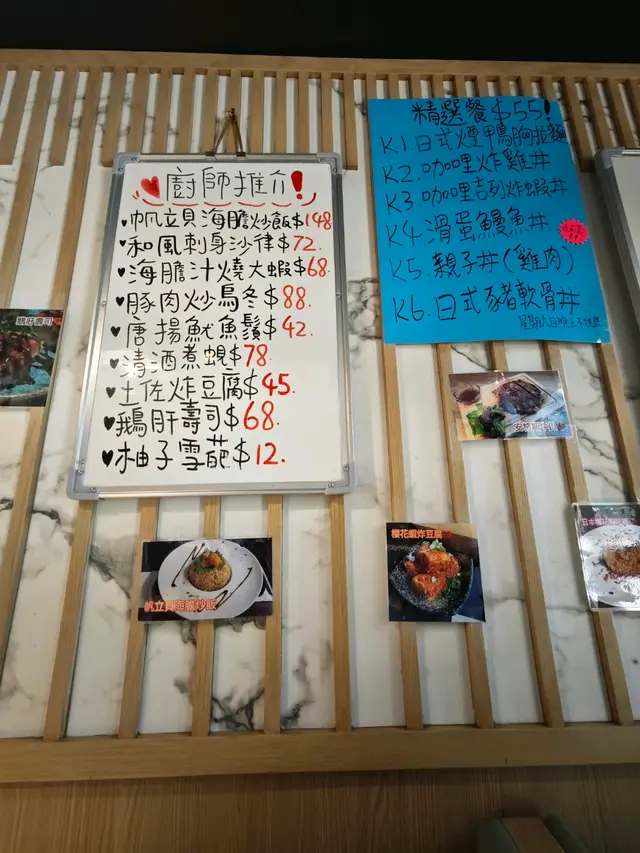 廚師推介!
帆立貝海膽炒飯$148
和風刺身沙律$72.
海膽汁燒大蝦$68.
豚肉炒烏冬$88.
唐揚魷魚鬚$42.
清酒煮蜆$78.
土佐炸豆腐$45.
鵝肝壽司$68.
柚子雪葩$12.
精選餐$55!
K1.日式煙鴨胸拉麵
K2.咖哩炸雞丼
K3.咖哩吉列炸蝦丼
K4.滑蛋鰻魚丼
K5.親子丼(雞肉)
K6.日式豬軟骨丼
鵝肝壽司
帆立貝海膽炒飯
櫻花蝦炸豆腐